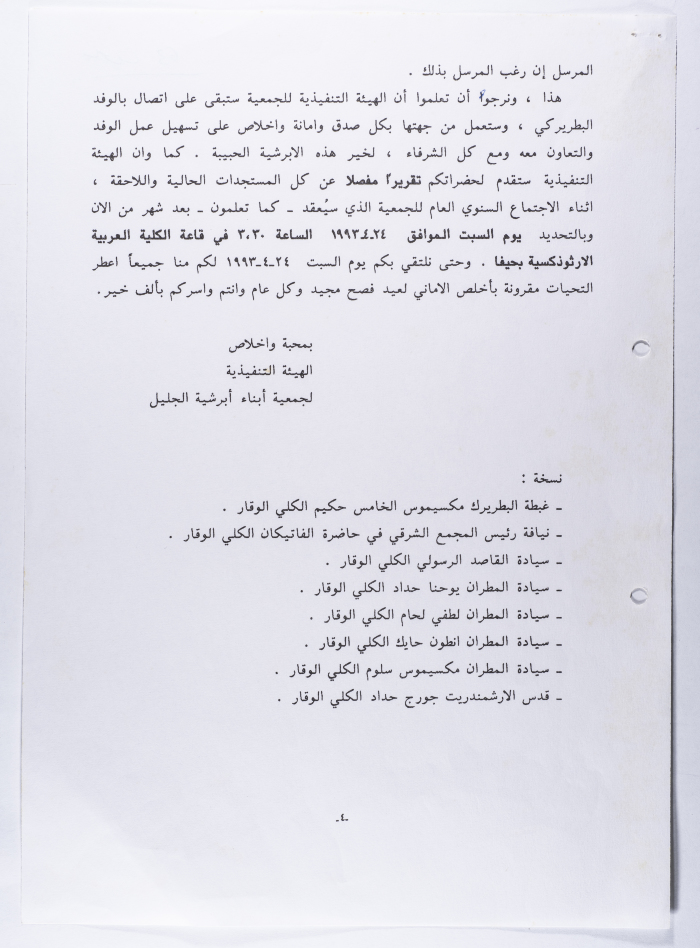 المرسل إن رغب المرسل بذلك .
هذا ، ونرجوا أن تعلموا أن الهيئة التنفيذية للجمعية ستبقى على اتصال بالوفد
البطريركي ، وستعمل من جهتها بكل صدق وامانة واخلاص على تسهيل عمل الوفد
والتعاون معه ومع كل الشرفاء ، لخير هذه الابرشية الحبيبة . كما وان الهيئة
التنفيذية ستقدم لحضراتكم تقريراً مفصلا عن كل المستجدات الحالية واللاحقة ،
اثناء الاجتماع السنوي العام للجمعية الذي سيُعقد ـ كما تعلمون ـ بعد شهر من الان
وبالتحديد يوم السبت الموافق ٢٤ـ٤ـ١٩٩٣ الساعة ٣،٣٠ في قاعة الكلية العربية
الارثوذكسية بحيفا . وحتى نلتقي بكم يوم السبت ٢٤ـ٤ـ١٩٩٣ لكم منا جميعاً اعطر
التحيات مقرونة بأخلص الاماني لعيد فصح مجيد وكل عام وانتم واسركم بألف خير.
بمحبة واخلاص
الهيئة التنفيذية
لجمعية أبناء أبرشية الجليل
نسخة :
ـ غبطة البطريرك مكسيموس الخامس حكيم الكلي الوقار .
ـ نيافة رئيس المجمع الشرقي في حاضرة الفاتيكان الكلي الوقار .
ـ سيادة القاصد الرسولي الكلي الوقار .
ـ سيادة المطران يوحنا حداد الكلي الوقار .
ـ سيادة المطران لطفي لحام الكلي الوقار .
ـ سيادة المطران انطون حايك الكلي الوقار .
ـ سيادة المطران مكسيموس سلوم الكلي الوقار .
ـ قدس الارشمندريت جورج حداد الكلي الوقار .
ـ٤ـ